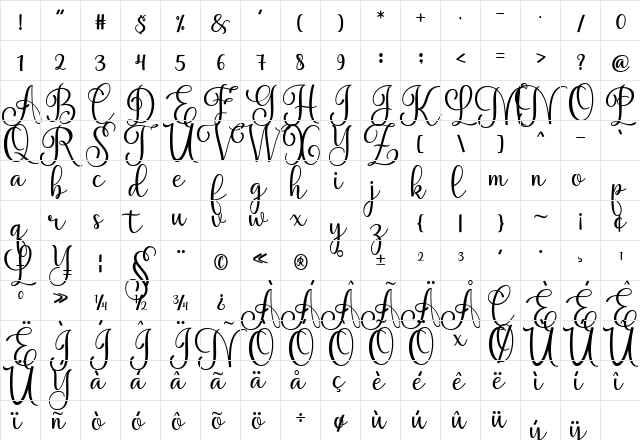 ! " # $ % & ' ( ) * + , - . / 0
1 2 3 4 5 6 7 8 9 : ; < = > ? @
A B C D E F G H I J K L M N O P
Q R S T U V W X Y Z [ \ ] ^ _ `
a b c d e f g h i j k l m n o p
q r s t u v w x y z { | } ~ ¡ ¢
£ ¥ ¦ § ¨ © « ¬ ® ¯ ° ± ² ³ ´ · ¸ ¹
º » ¼ ½ ¾ ¿ À Á Â Ã Ä Å Ç È É Ê
Ë Ì Í Î Ï Ñ Ò Ó Ô Õ Ö × Ø Ù Ú Û
Ü Ý à á â ã ä å ç è é ê ë ì í î
ï ñ ò ó ô õ ö ÷ ø ù ú û ü ý ÿ